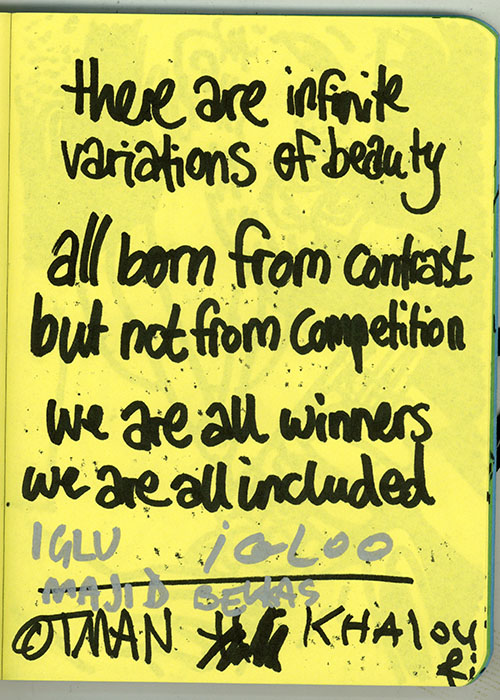 there are infinite
variations of beauty
all born from contrast
but not from competition
we are all winners
we are all included
IGLU iGLOO
MAJID BEKAS
OTMAN KHALOU
Ri